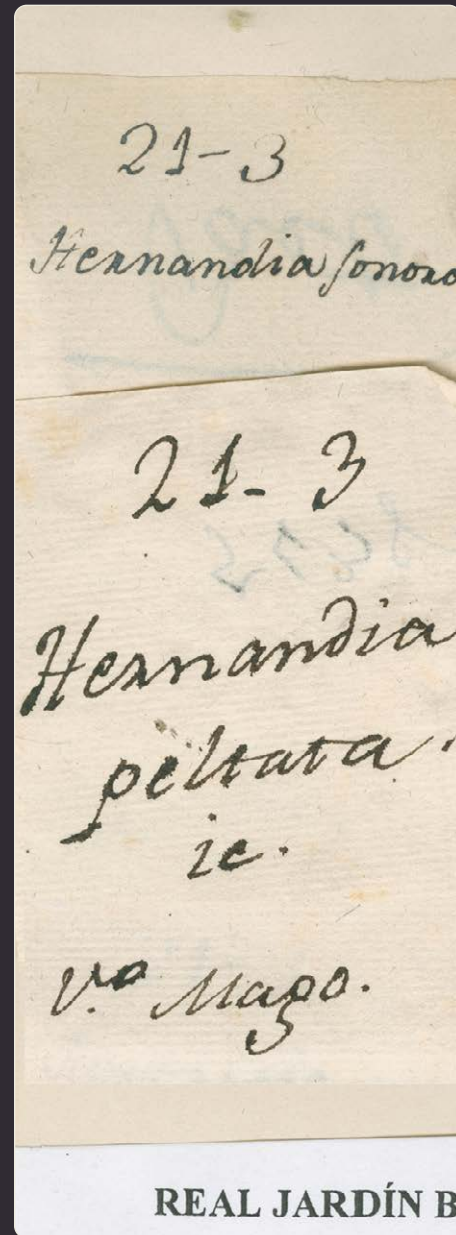 21-3
Hernandia sonora
21-3
Hernandia
peltata.
ic.
v.º Mago.
REAL JARDÍN B